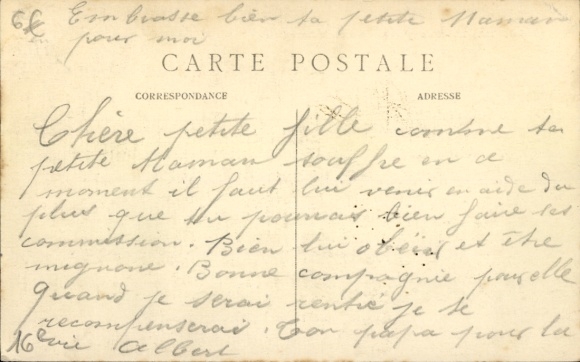 6€
Embrasse bien ta petite Maman
pour moi
CARTE POSTALE
CORRESPONDANCE
ADRESSE
Chère petite fille combne ta
petite Maman souffre en ce
moment il faut lui venir en aide du
plus que tu pourrais bien faire ses
commission. Bien lui obéir et être
mignone. Bonne compagnie pour elle
Quand je serai rentré je te
recompenserai. Ton papa pour la
vie Albert
16e